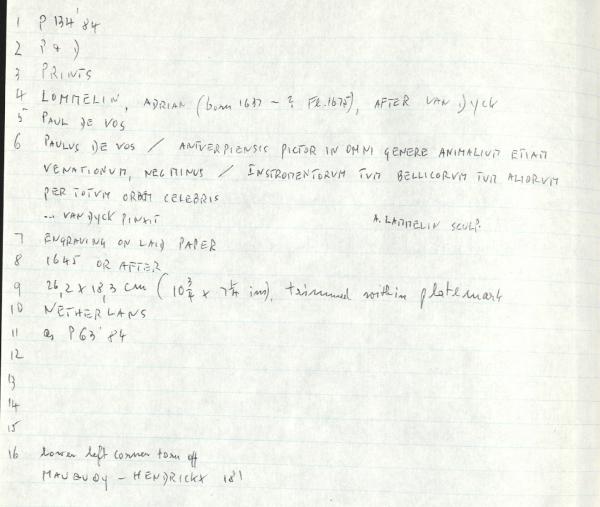 1 P 134'84
2 P a )
3 PRINTS
4 LOMMELIN, ADRIAN (born 1637 - ? Fl. 1675), AFTER VAN DYCK
5 PAUL DE VOS
6 PAULUS DE VOS / ANTVERPIENSIS PICTOR IN OMNI GENERE ANIMALIUM ETIAM
VENATIONUM, NEC MINUS / INSTROMENTORUM TUM BELLICORUM TUM ALIORUM
PER TOTUM ORBEM CELEBRIS
... VAN DYCK PINXIT A. LAMMELIN SCULP.
7 ENGRAVING ON LAID PAPER
8 1645 OR AFTER
9 26,2 X 18,3 cm (10 3/4 x 7 1/4 ins), trimmed within platemark
10 NETHERLANS
11 as P 63'84
12
13
14
15
16 lower left corner torn off
MAUQUOY - HENDRICKX 181